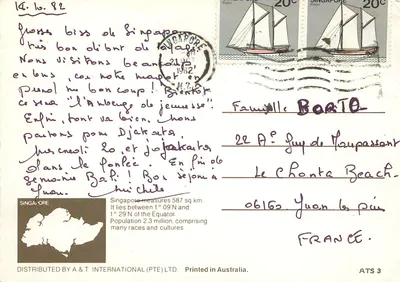 14.10.82
Grosses bises de Singapour
Nous visitons beaucoup
en bus, car notre
prend nu bon coup!
ce sera "l'Auberge de jeunesse".
Enfin, tout va bien. Nous
partons pour Djakarta,
Mercredi 20, et
dans la foulée. En fin de
semaine Bali! Bon séjour à
Juan. Michèle
SINGAPORE
1982
20c
20c
Famille BORTE
22 Av Guy de Maupassant
Le Chonta Beach
06160 Juan les pins
FRANCE.
SINGAPORE
Singapore measures 587 sq.km.
It lies between 1° 09'N and
1° 29'N of the Equator.
Population 2.3 million, comprising
many races and cultures
DISTRIBUTED BY A & T INTERNATIONAL (PTE) LTD. Printed in Australia.
ATS 3